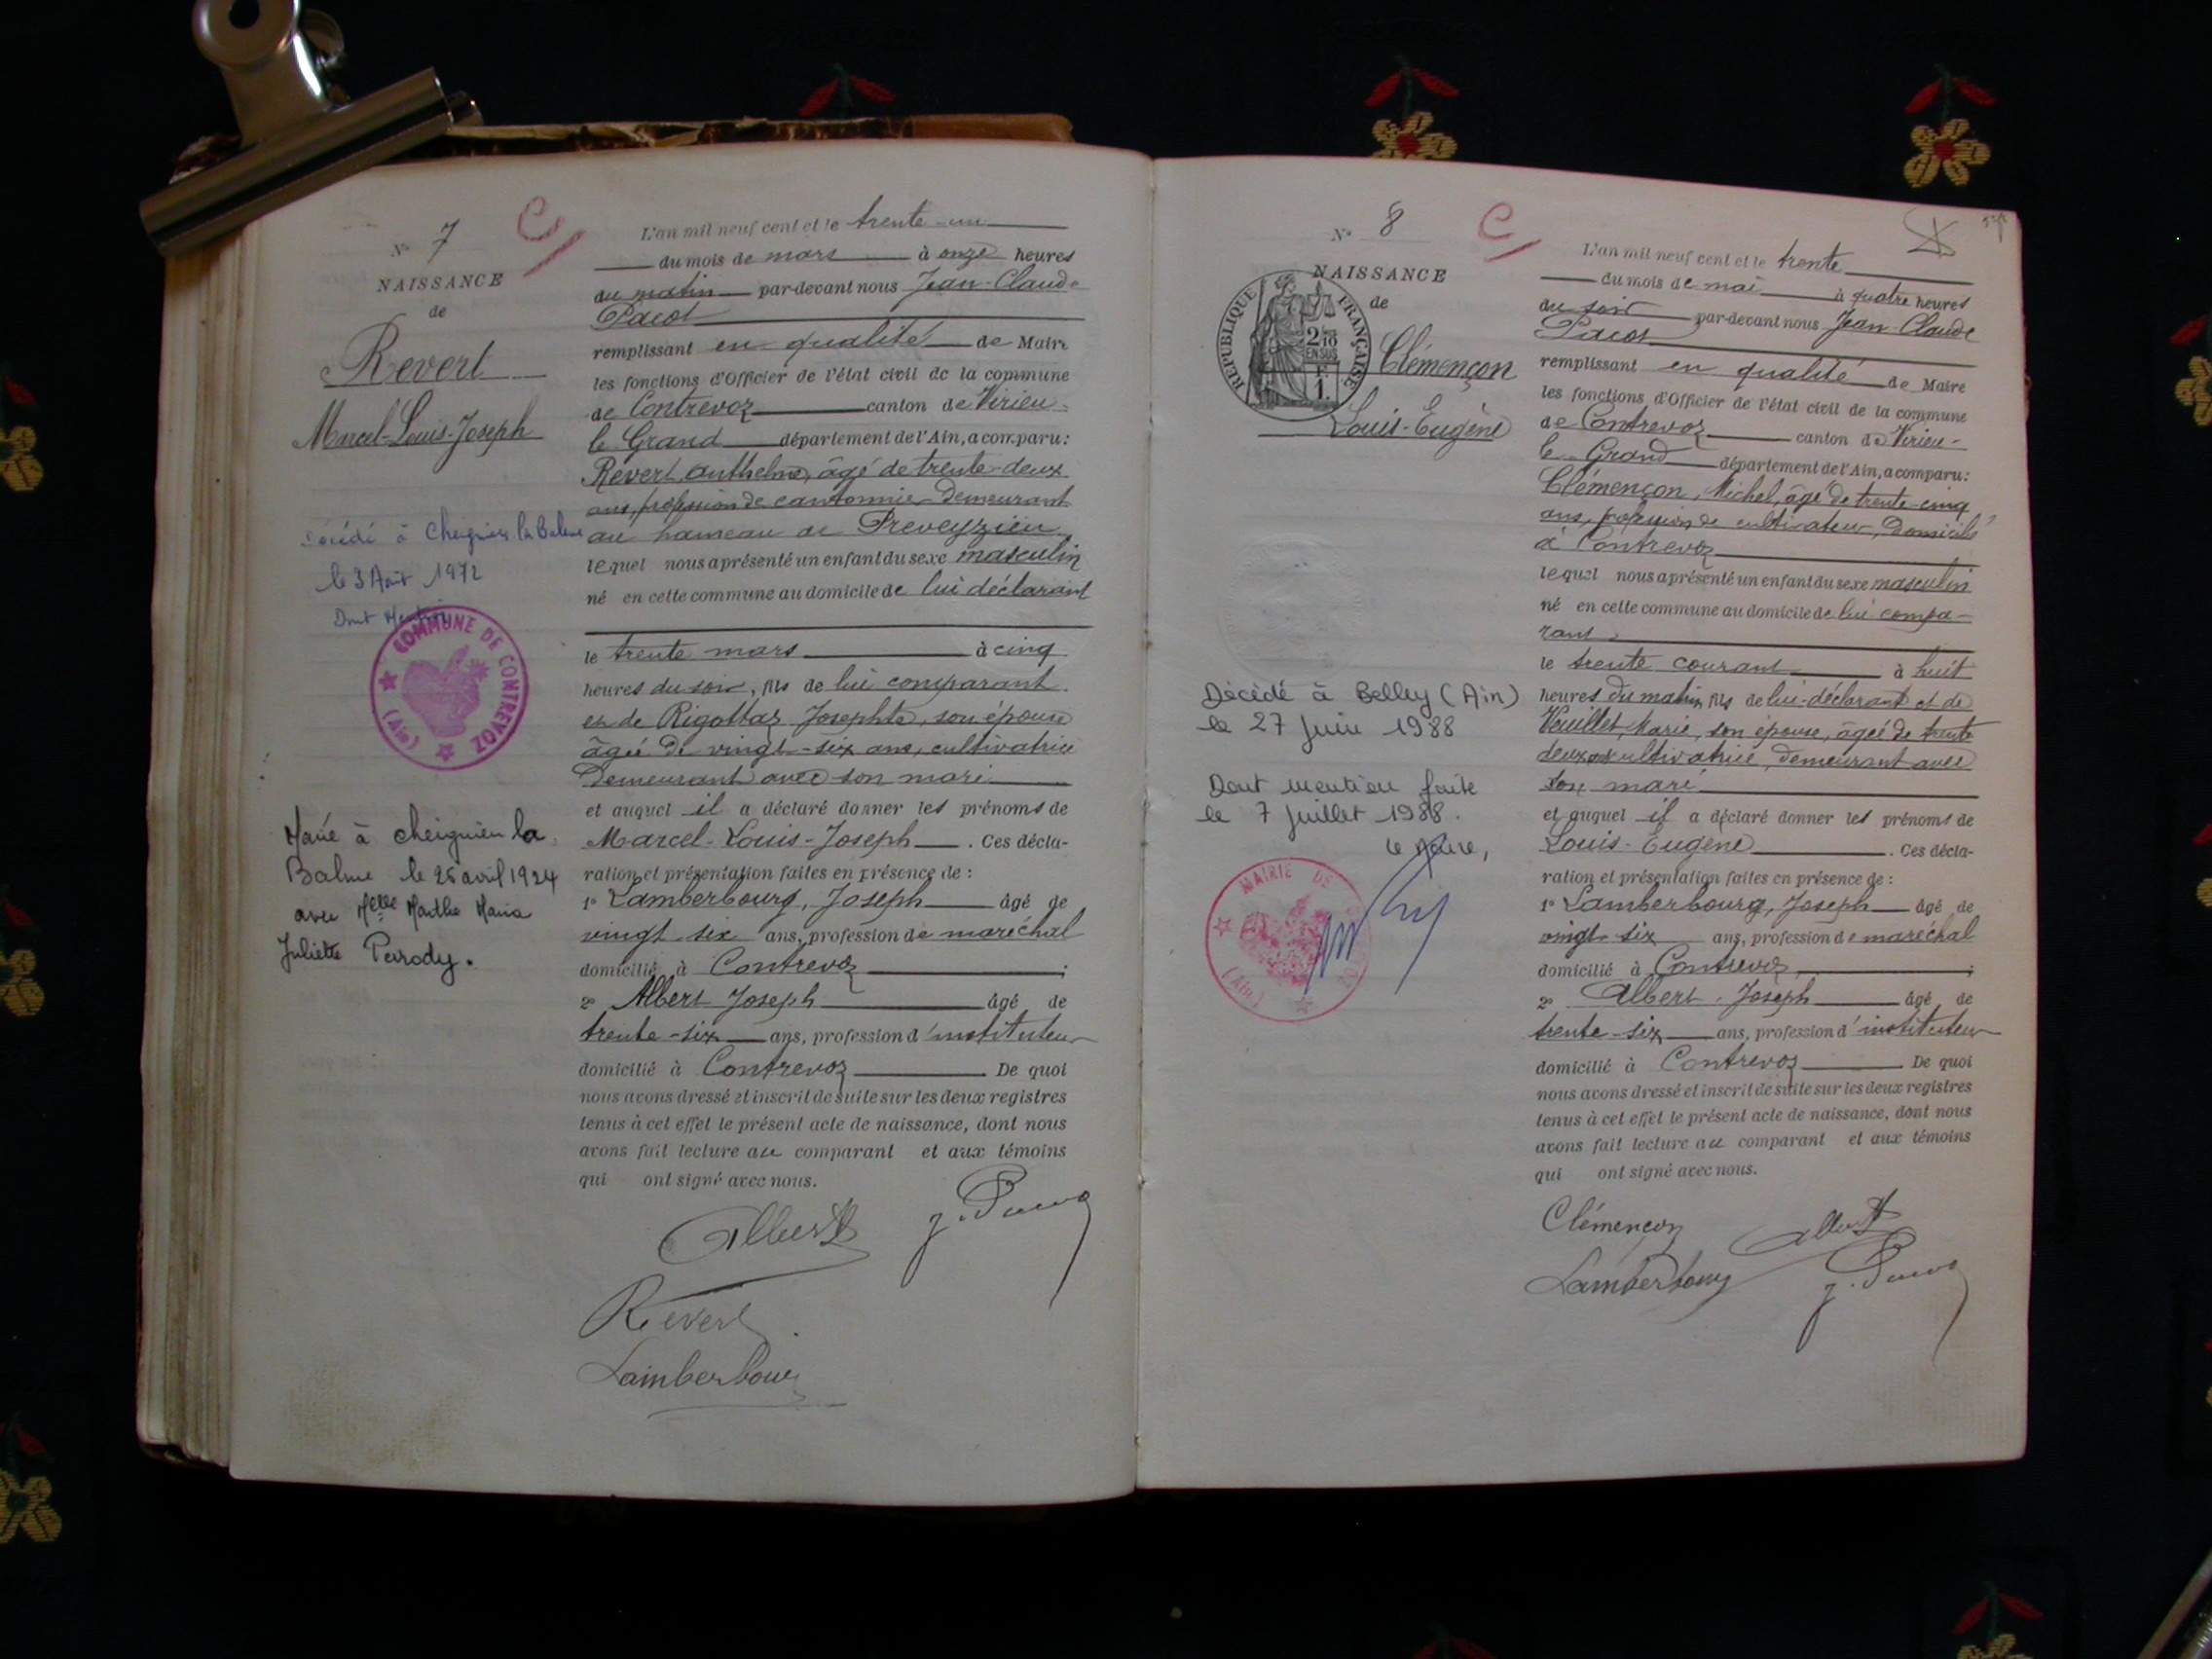 N° 7
NAISSANCE
de
Revert
Marcel-Louis-Joseph
Décédé à Cheignieu la Balme
le 3 Août 1972
Dont Mention
COMMUNE DE CONTREVOZ
(Ain)
Marié à cheignieu la
Balme le 25 avril 1924
avec Melle Marthe Maria
Juliette Parody.
L'an mil neuf cent et le trente-un
du mois de mars à onze heures
du matin par-devant nous Jean-Claude
Pacot
remplissant en qualité de Maire
les fonctions d'Officier de l'état civil de la commune
de Contrevoz canton de Virieu-
le Grand département de l'Ain, a comparu:
Revert, Anthelme, âgé de trente-deux
ans, profession de cantonnier demeurant
au hameau de Preveyzieu
lequel nous a présenté un enfant du sexe masculin
né en cette commune au domicile de lui déclarant
le trente mars à cinq
heures du soir, fils de lui comparant
et de Rigottaz Josephte, son épouse
âgée de vingt-six ans, cultivatrice
demeurant avec son mari
et auquel il a déclaré donner les prénoms de
Marcel-Louis-Joseph. Ces décla-
ration et présentation faites en présence de:
1° Lamberbourg, Joseph âgé de
vingt-six ans, profession de maréchal
domicilié à Contrevoz;
2° Albert Joseph âgé de
trente-six ans, profession d'instituteur
domicilié à Contrevoz De quoi
nous avons dressé et inscrit de suite sur les deux registres
tenus à cet effet le présent acte de naissance, dont nous
avons fait lecture au comparant et aux témoins
qui ont signé avec nous.
Albert J. Pacot
Revert
Lamberbourg
N° 8
NAISSANCE
de
REPUBLIQUE FRANÇAISE
2/10 EN SUS
1 F.
Clémençon
Louis-Eugène
Décédé à Belley (Ain)
le 27 Juin 1988
Dont mention faite
le 7 Juillet 1988.
Le Maire,
MAIRIE DE
(Ain)
L'an mil neuf cent et le trente
du mois de mai à quatre heures
du soir par-devant nous Jean-Claude
Pacot
remplissant en qualité de Maire
les fonctions d'Officier de l'état civil de la commune
de Contrevoz canton de Virieu-
le-Grand département de l'Ain, a comparu:
Clémençon, Michel, âgé de trente-cinq
ans, profession de cultivateur, domicilié
à Contrevoz
lequel nous a présenté un enfant du sexe masculin
né en cette commune au domicile de lui compa-
rant,
le trente courant à huit
heures du matin, fils de lui-déclarant et de
Vuillet, Marie, son épouse, âgée de trente
deux ans cultivatrice, demeurant avec
son mari
et auquel il a déclaré donner les prénoms de
Louis-Eugène. Ces décla-
ration et présentation faites en présence de:
1° Lamberbourg, Joseph âgé de
vingt-six ans, profession de maréchal
domicilié à Contrevoz;
2° Albert, Joseph âgé de
trente-six ans, profession d'instituteur
domicilié à Contrevoz De quoi
nous avons dressé et inscrit de suite sur les deux registres
tenus à cet effet le présent acte de naissance, dont nous
avons fait lecture au comparant et aux témoins
qui ont signé avec nous.
Clémençon Albert
Lamberbourg J. Pacot